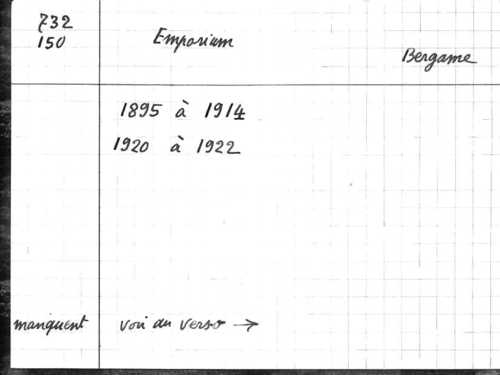 732
150
Emporium
Bergame
1895 à 1914
1920 à 1922
manquent voir au verso →